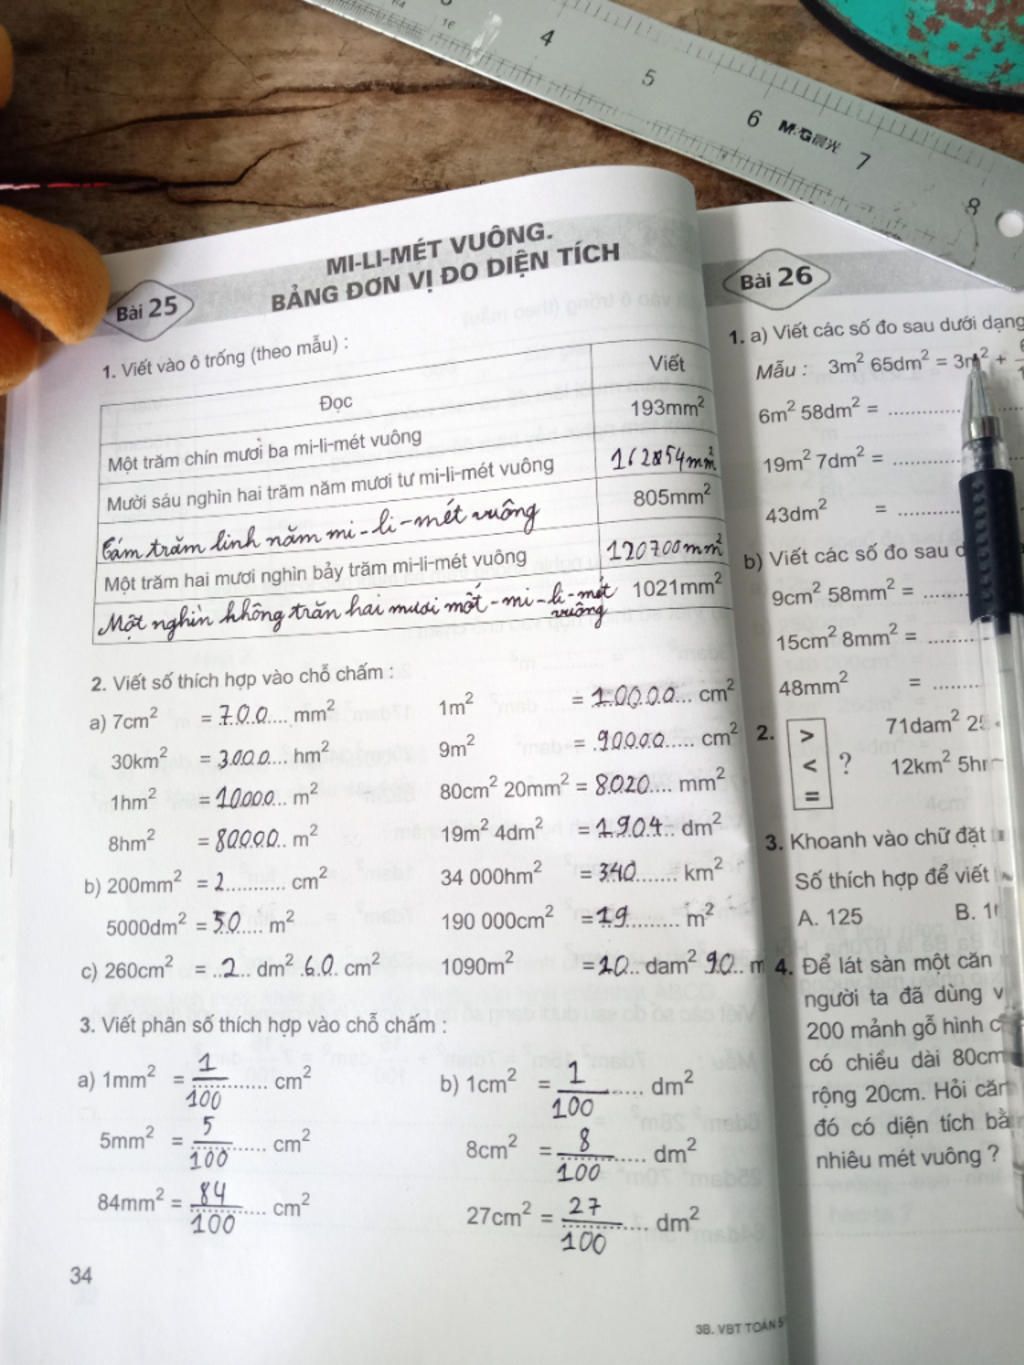 4 5 6 M&G 晨光 7 8
MI-LI-MÉT VUÔNG.
Bài 25 BẢNG ĐƠN VỊ ĐO DIỆN TÍCH
1. Viết vào ô trống (theo mẫu) :
Đọc Viết
Một trăm chín mươi ba mi-li-mét vuông 193mm²
Mười sáu nghìn hai trăm năm mươi tư mi-li-mét vuông
Tám trăm linh năm mi-li-mét vuông 805mm²
Một trăm hai mươi nghìn bảy trăm mi-li-mét vuông 120700mm²
Một nghìn không trăn hai mươi một-mi-li-mét vuông 1021mm²
2. Viết số thích hợp vào chỗ chấm :
a) 7cm² = 700 mm² 1m² = 10000 cm²
30km² = 3000 hm² 9m² = 90000 cm²
1hm² = 10000 m² 80cm² 20mm² = 8020 mm²
8hm² = 80000 m² 19m² 4dm² = 1904 dm²
b) 200mm² = 2 cm² 34 000hm² = 340 km²
5000dm² = 50 m² 190 000cm² = 19 m²
c) 260cm² = 2 dm² 60 cm² 1090m² = 10 dam² 90 m
3. Viết phân số thích hợp vào chỗ chấm :
a) 1mm² = 1/100 cm² b) 1cm² = 1/100 dm²
5mm² = 5/100 cm² 8cm² = 8/100 dm²
84mm² = 84/100 cm² 27cm² = 27/100 dm²
34
3B. VBT TOÁN 5
Bài 26
1. a) Viết các số đo sau dưới dạng
Mẫu : 3m² 65dm² = 3m² +
6m² 58dm² =
19m² 7dm² =
43dm² =
b) Viết các số đo sau
9cm² 58mm² =
15cm² 8mm² =
48mm² =
2. > < = ? 71dam²
12km²
3. Khoanh vào chữ đặt
Số thích hợp để viết
A. 125 B.
4. Để lát sàn một căn
người ta đã dùng
200 mảnh gỗ hình
có chiều dài 80cm
rộng 20cm. Hỏi
đó có diện tích
nhiêu mét vuông ?